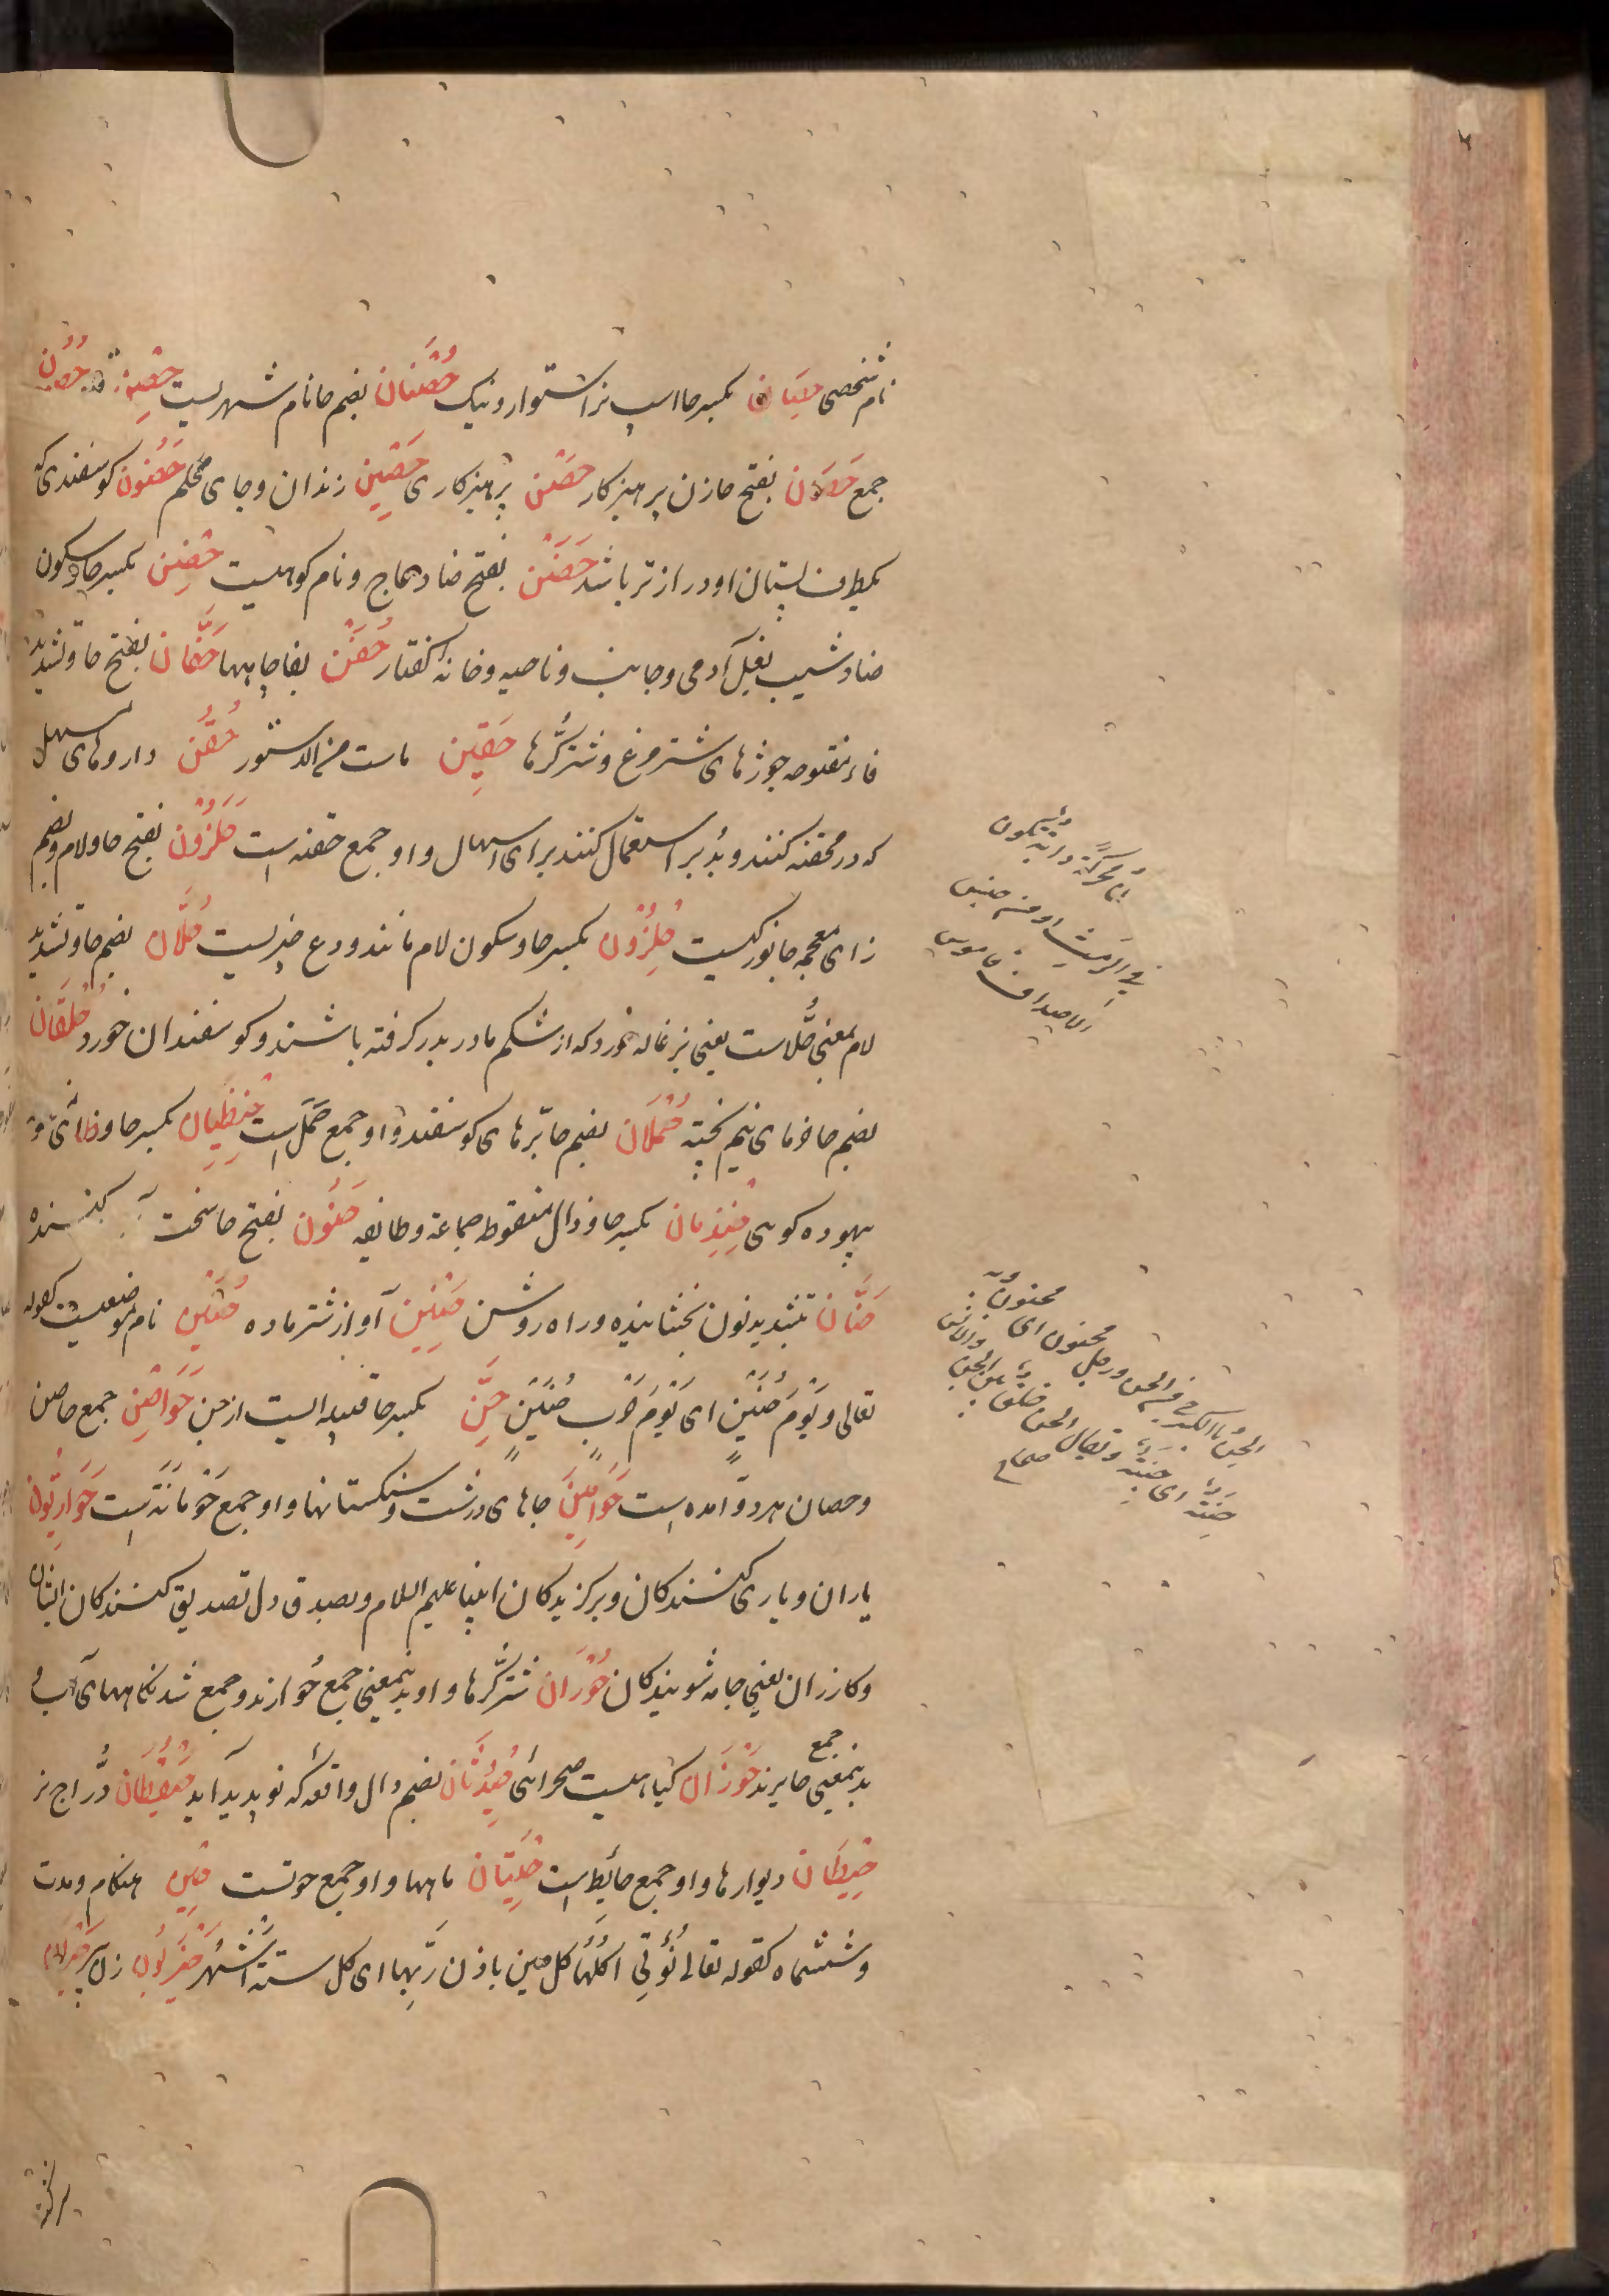 نام شخصی حِصَان بکسر حا اسپ نر استوار و نیک حُصْنَان بضم حا نام شهریست حُصُن
جمع حَصَان بفتح حا زن پرهیزکار حصن پرهیزکاری حَصِین زندان و جای محکم حَضُون کوسفندی که
یکطرف پستان او درازتر باشد حَضَن بفتح ضاد عاج و نام کوهیست حِضْن بکسر حا و سکون
ضاد شیب بغل آدمی و جانب و ناحیه و خانه کفتار حُفَن بفا چاهها حَفَّان بفتح حا و تشدید
فاء مفتوحه جوژهای شترمرغ و شترکرّها حَقِین ماست من الدستور حُقَن داروهای مسهل
که در محقنه کنند و بدبر استعمال کنند برای اسهال و او جمع حقنه است حَلَزُون بفتح حا و لام و بضم
زای معجمه جانورکیست حِلْزُون بکسر حا و سکون لام مانند ودع خبریست حُلَّان بضم حا و تشدید
لام بمعنی حلّاست یعنی بزغاله خورد که از شکم مادر بدر کرفته باشند و کوسفندان خورد حُلْقَان
بضم حا خرمای نیم پخته حُمْلَان بضم حا برّهای کوسفند و او جمع حَمَل است حِنْظِیان بکسر حا و ظائ
بیهوده کوی حِنْذِمان بکسر حا و ذال منقوطه جماعة و طایفه حَنُون بفتح حا سخت کننده
حَنَّان بتشدید نون بخشاینده و راه روشن حَنِین آواز شتر ماده حُنَیْن نام موضعیست کقوله
تعالی وَیَوْمَ حُنَیْنٍ ای یَوْمَ حَرْب حُنَیْن حِنّ بکسر حا قبیله ایست از جن حَوَاصِن جمع حاصن
و حصان هر دو آمده است حَوَامِین جاهای درشت و سنکستانها و او جمع حَوْمانَة است حَوَارِیُّون
یاران و یاری کنندکان و برکزیدکان انبیا علیهم السلام و بصدق دل تصدیق کنندکان ایشان
و کازران یعنی جامه شویندکان حُورَان شترکرّها و او بدینمعنی جمع حُوارند و جمع شدنکاههای آب و
بدینمعنی جمع حایرند حَوْزَان کیاهیست صحرائی حِیدُثَان بضم دال واقعه که نو پدید آید حَیْقُطَان درّاج نر
حِیطَان دیوارها و او جمع حایط است حِیتَان ماهیها و او جمع حوتست حِین هنکام و مدت
و ششماه کقوله تعالی تُؤْتِی اُکُلَهَا کُلَّ حِین باذن رَبِّها ای کل ستة اَشْهُر حَیْزَبُون زن پیر
محرکة دابّة تکون
فی الرمث او من جنس
الاصداف قاموس
الحِنّ بالکسر حی من الجن و رجل محنون ای مجنون
صحاح